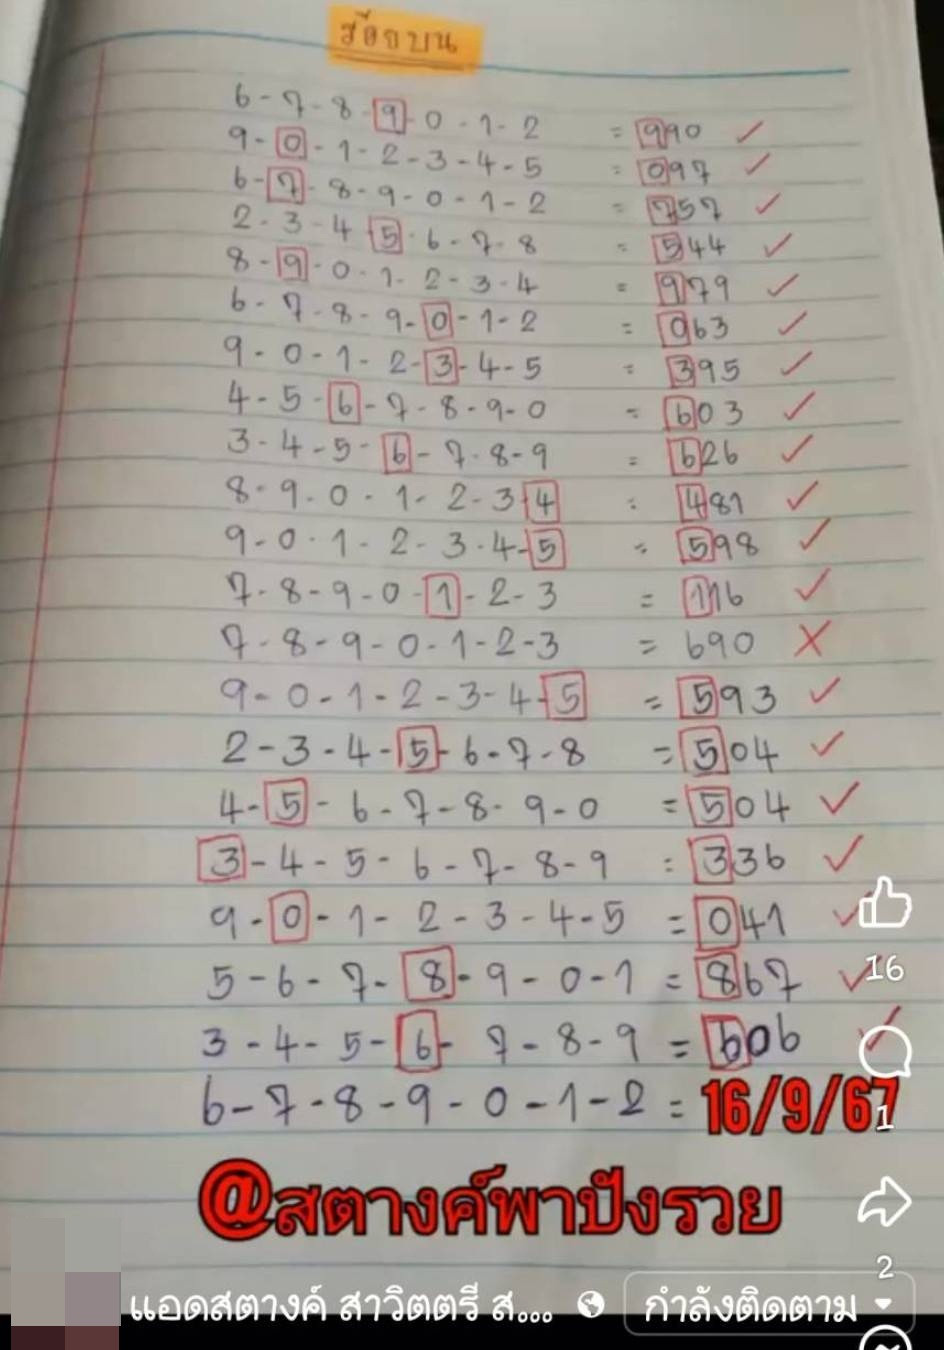 ร้อยบน
6-7-8-9-0-1-2 = 990 ✓
9-0-1-2-3-4-5 = 097 ✓
6-7-8-9-0-1-2 = 757 ✓
2-3-4-5-6-7-8 = 544 ✓
8-9-0-1-2-3-4 = 979 ✓
6-7-8-9-0-1-2 = 063 ✓
9-0-1-2-3-4-5 = 395 ✓
4-5-6-7-8-9-0 = 603 ✓
3-4-5-6-7-8-9 = 626 ✓
8-9-0-1-2-3-4 = 481 ✓
9-0-1-2-3-4-5 = 598 ✓
7-8-9-0-1-2-3 = 116 ✓
7-8-9-0-1-2-3 = 690 X
9-0-1-2-3-4-5 = 593 ✓
2-3-4-5-6-7-8 = 504 ✓
4-5-6-7-8-9-0 = 504 ✓
3-4-5-6-7-8-9 = 336 ✓
9-0-1-2-3-4-5 = 041 ✓
16
5-6-7-8-9-0-1 = 867 ✓
3-4-5-6-7-8-9 = 606 ✓
6-7-8-9-0-1-2 = 16/9/67
1
@สตางค์พาปังรวย
2
แอดสตางค์ สาวิตตรี ส... กำลังติดตาม